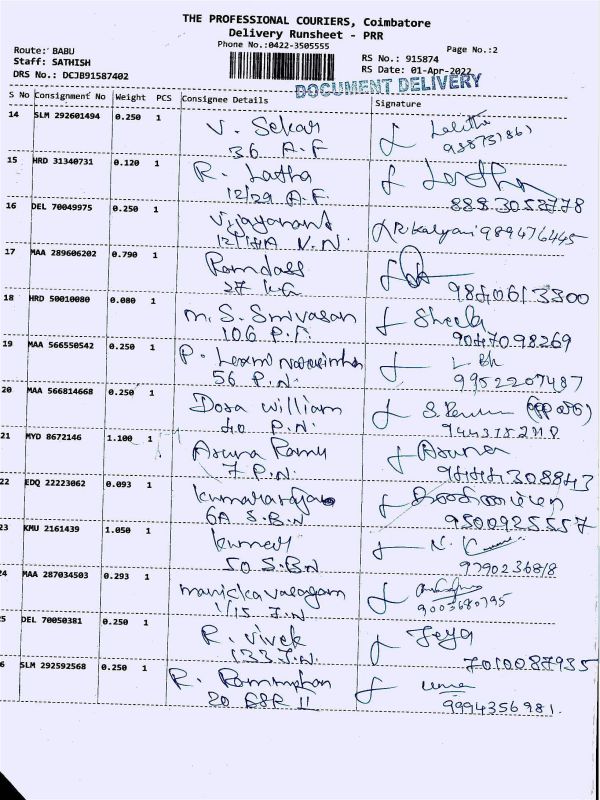 THE PROFESSIONAL COURIERS, Coimbatore
Delivery Runsheet - PRR
Phone No.:0422-3505555
Page No.:2
Route: BABU
Staff: SATHISH
DRS No.: DCJB91587402
RS No.: 915874
RS Date: 01-Apr-2022
DOCUMENT DELIVERY
S No Consignment No Weight PCS Consignee Details Signature
14 SLM 292601494 0.250 1 V. Sekar Lalitha
36 A.F
15 HRD 31340731 0.120 1 R. Latha Latha
12/29 A.F. 888 3058778
16 DEL 70049975 0.250 1 Vijayanand R. Kalyani 989476445
V.N.
17 MAA 289606202 0.790 1 Ramdass
27 K.G
18 HRD 50010080 0.080 1 M. S. Srnivasan Sheela
106 P.F. 9047098269
19 MAA 566550542 0.250 1 P. Laxmi
56 P.N. 9952207487
20 MAA 566814668 0.250 1 Dosa William
40 P.N.
21 MYD 8672146 1.100 1 Aruna Ramu Aruna
7 P.N. 9444308843
22 EDQ 22223062 0.093 1
6A S.B.N 9500925557
23 KMU 2161439 1.050 1
50 S.BN 9790236818
24 MAA 287034503 0.293 1 manickavasagam
1/15 J.N 9003680795
25 DEL 70050381 0.250 1 R. Vivek Jeya
133 J.N. 7010087935
26 SLM 292592568 0.250 1 R. uma
20 BSR II 9994356981.